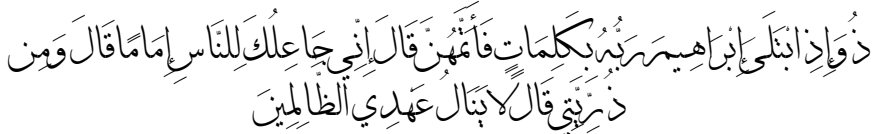 ذُوَإِذِ ابْتَلَىٰ إِبْرَاهِيمَ رَبُّهُ بِكَلِمَاتٍ فَأَتَمَّهُنَّ قَالَ إِنِّي جَاعِلُكَ لِلنَّاسِ إِمَامًا قَالَ وَمِن
ذُرِّيَّتِي قَالَ لَا يَنَالُ عَهْدِي الظَّالِمِينَ